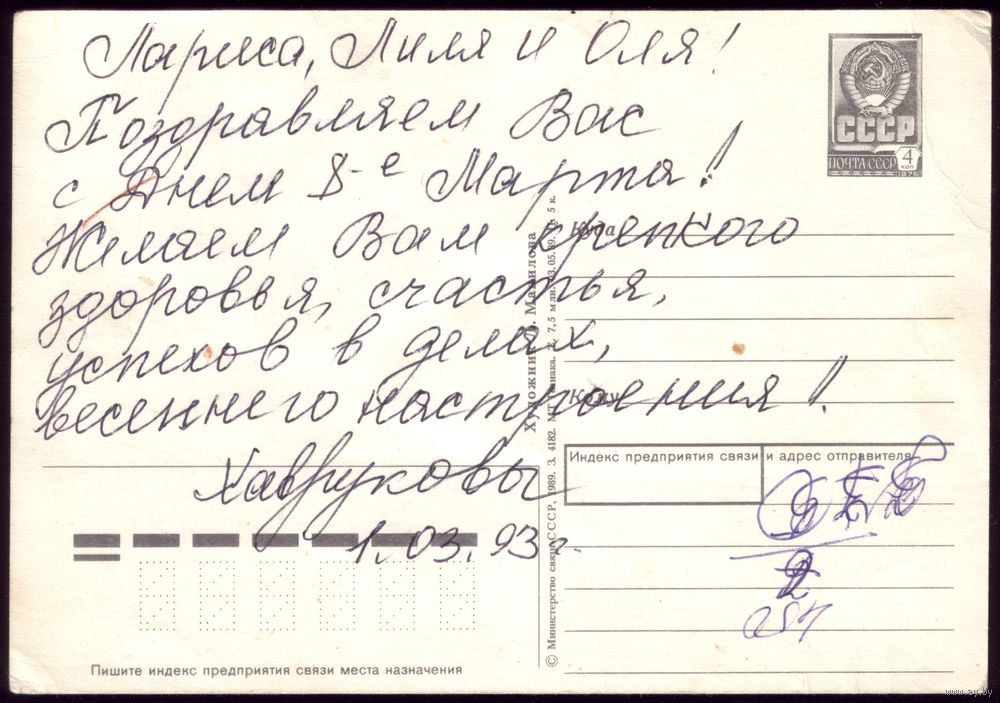 Лариса, Лиля и Оля!
Поздравляем Вас
с Днем 8-е Марта!
Желаем Вам крепкого
здоровья, счастья,
успехов в делах,
весеннего настроения!
Хавруковы
1.03.93 г.
СССР
ПОЧТА СССР 4 КОП
1976
Куда
Кому
Индекс предприятия связи и адрес отправителя
Пишите индекс предприятия связи места назначения
© Министерство связи СССР, 1989. З. 4182. МТ Гознака.
7,5 млн. 03.05.89. 5 к.
Художник Манилова
www.ay.by